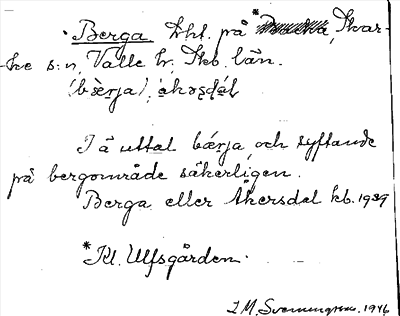 Berga tht. på * Skar-
-ke s:n, Valle hr, Skb. län.
(bærja), åkəʂɖɑl
I ä uttal bærja, och syftande
på bergområde säkerligen.
Berga eller Åkersdal kb. 1939
*Kl. Ulfsgården.
I.M. 1946